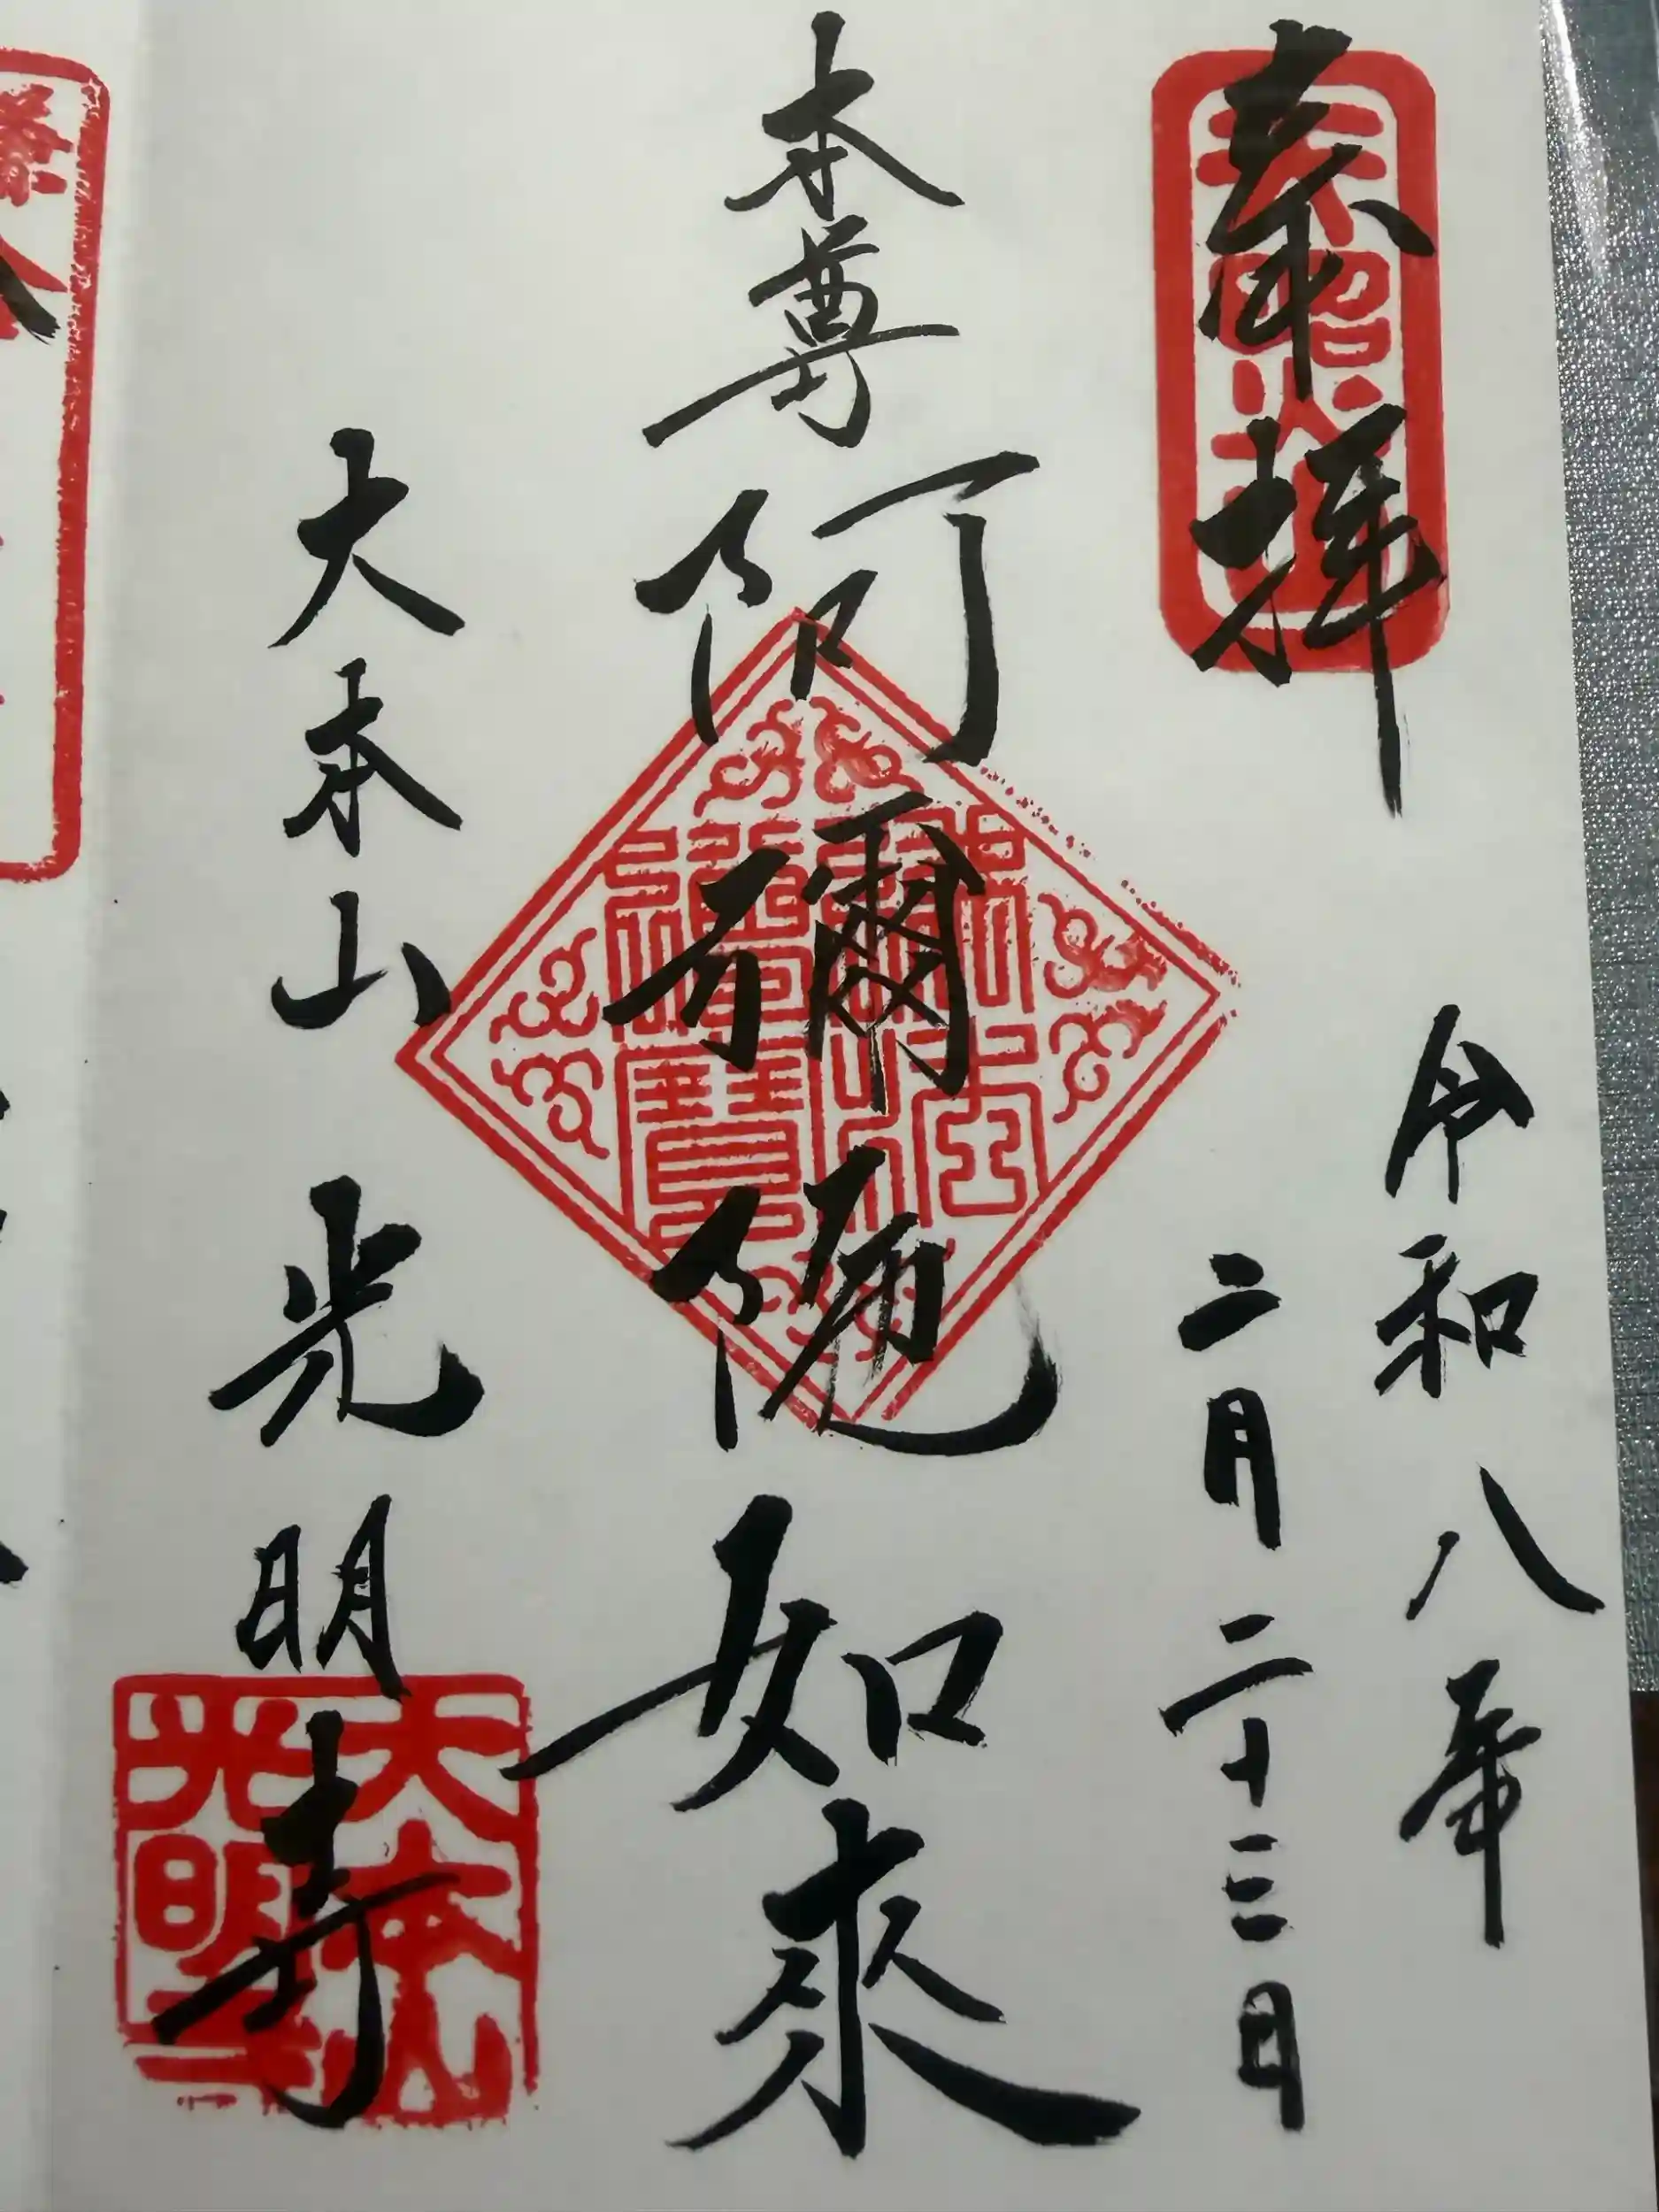 奉拝
令和八年
二月二十三日
本尊 阿彌陀如來
大本山 光明寺
大本山
光明寺